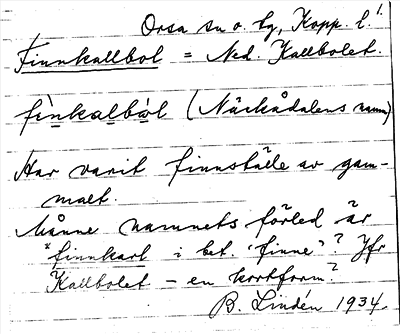 Orsa sn o. bg, Kopp. l. 1.
Finnkallbol = Ned. Kallbolet.
fìnkalbo̤l (Näckådalens namn)
Har varit finnställe av gam-
malt.
Månne namnets förled är
*finnkarl i bet. 'finne'? Jfr
Kallbolet – en kortform?
B. Lindén 1934.